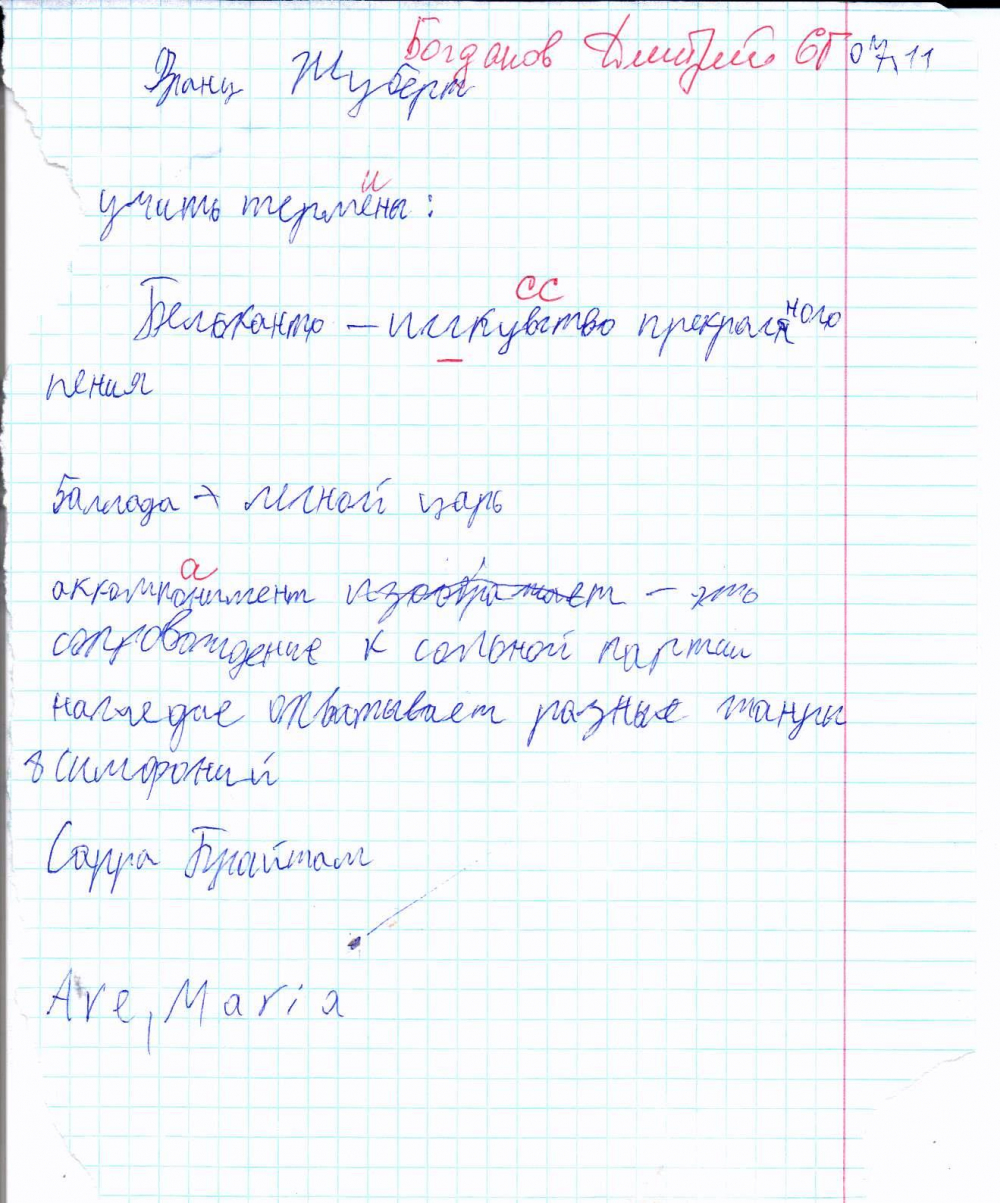 Богданов Дмитрий 6Г 07.11
Франц Шуберт
и
учить термены:
сс
Бельканто – исскувство прекрасного
пения
Баллада → лесной царь
а
аккомпонимент изображает – это
сопровождение к сольной партии
наследие охватывает разные жанры
8 симфоний
Сарра Брайтам
Ave, Maria